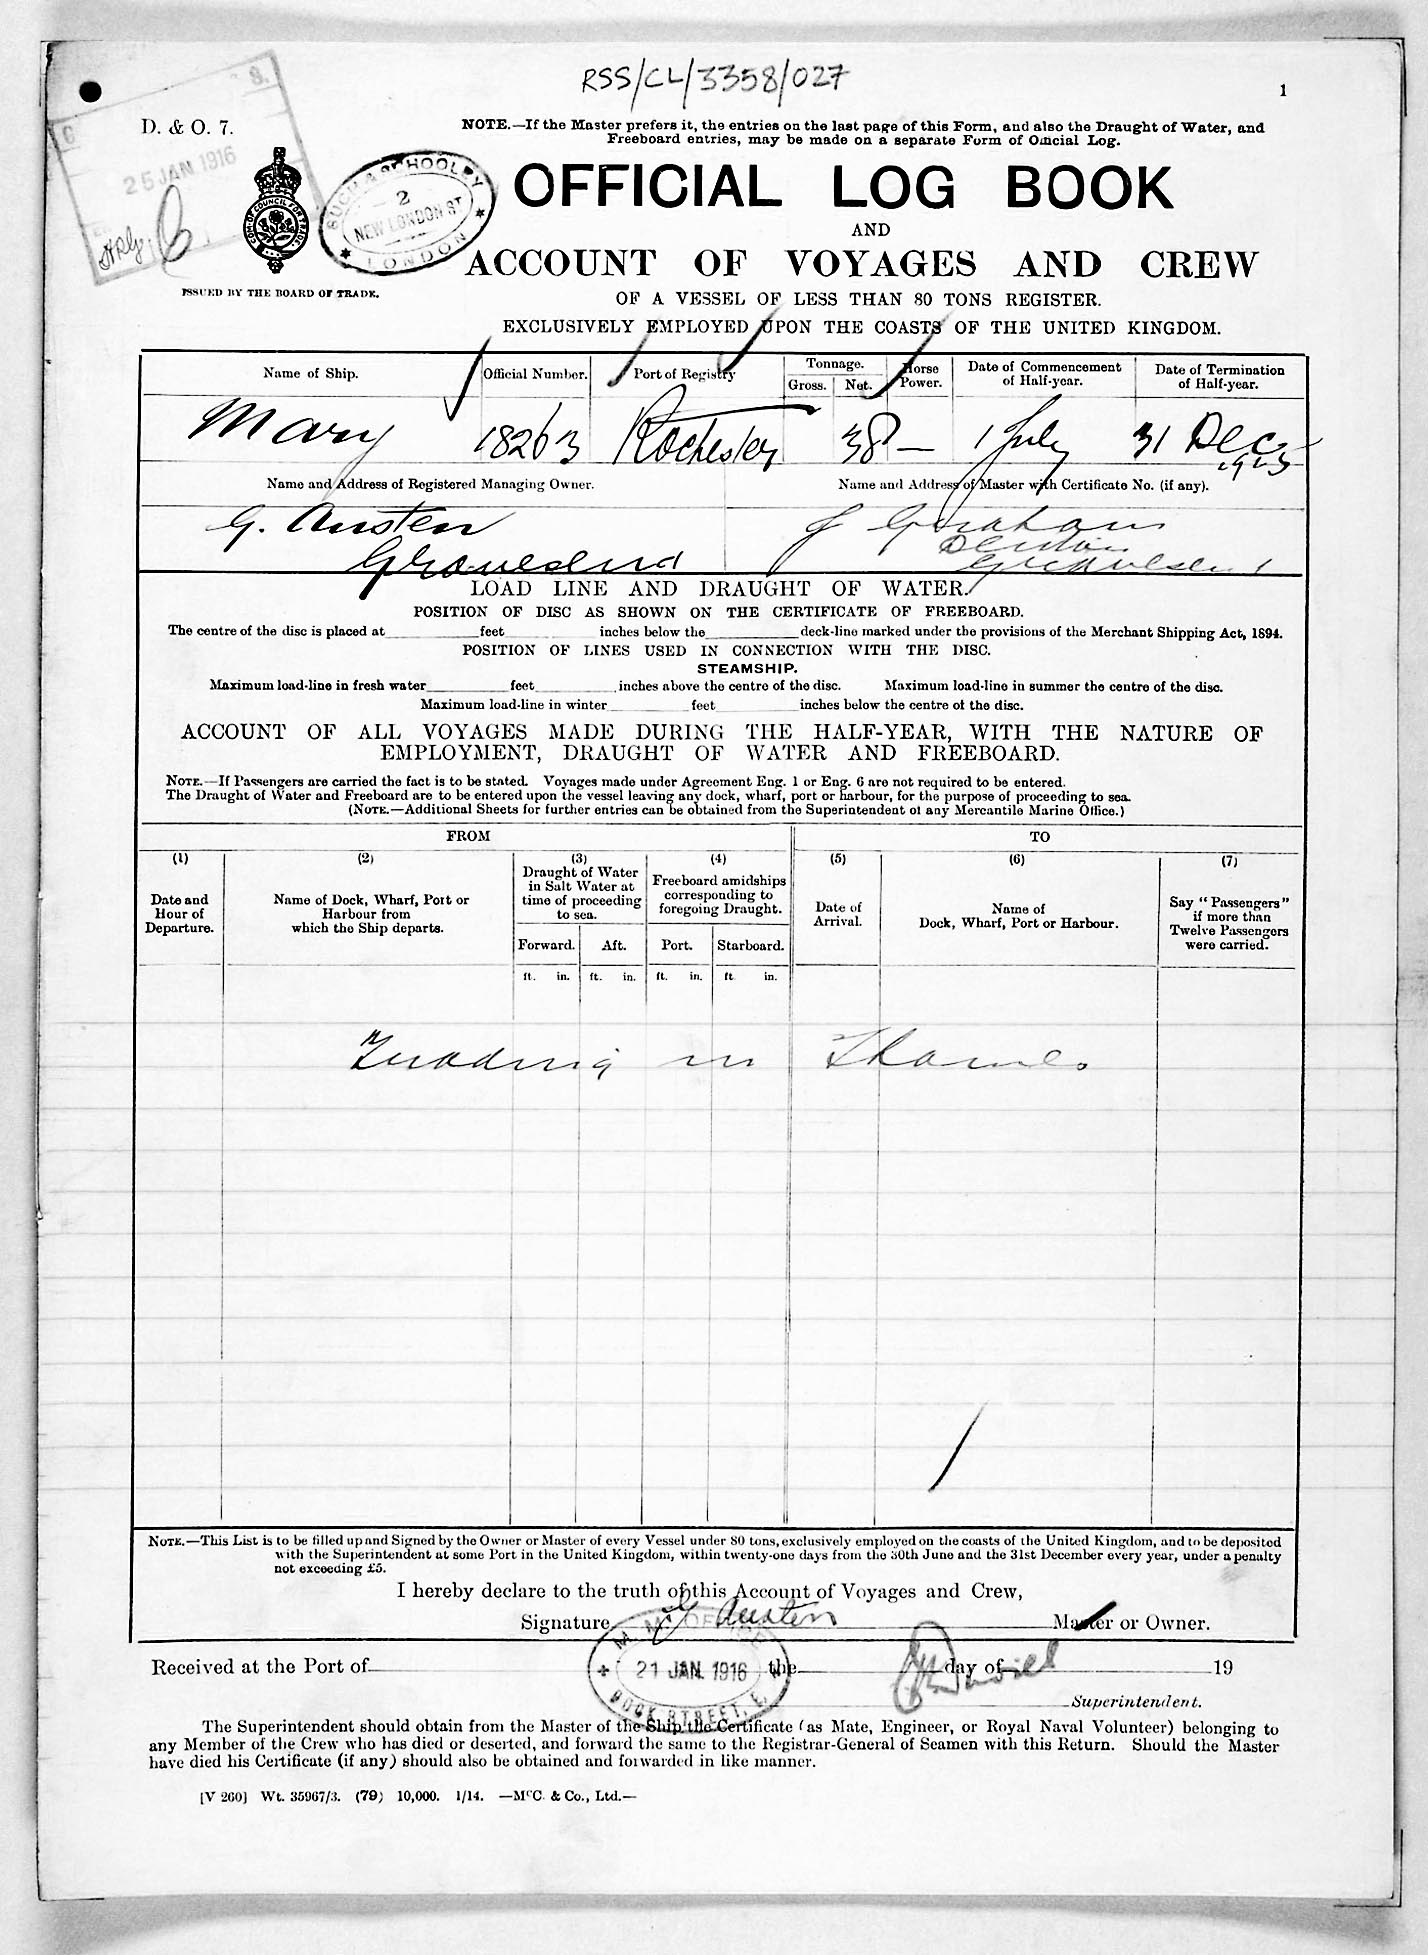 RSS/CL/3358/027
1
D. & O. 7.
25 JAN 1916
NOTE.—If the Master prefers it, the entries on the last page of this Form, and also the Draught of Water, and
Freeboard entries, may be made on a separate Form of Official Log.
SCHOOLEY
2
NEW LONDON ST
LONDON
OFFICIAL LOG BOOK
AND
ACCOUNT OF VOYAGES AND CREW
ISSUED BY THE BOARD OF TRADE.
OF A VESSEL OF LESS THAN 80 TONS REGISTER.
EXCLUSIVELY EMPLOYED UPON THE COASTS OF THE UNITED KINGDOM.
Name of Ship. Official Number. Port of Registry Tonnage. Gross. Net. Horse Power. Date of Commencement of Half-year. Date of Termination of Half-year.
Mary 18263 Rochester 38 — 1 July 31 Dec 1915
Name and Address of Registered Managing Owner. Name and Address of Master with Certificate No. (if any).
G. Austen J Graham
Denton
Gravesend Gravesend
LOAD LINE AND DRAUGHT OF WATER.
POSITION OF DISC AS SHOWN ON THE CERTIFICATE OF FREEBOARD.
The centre of the disc is placed at feet inches below the deck-line marked under the provisions of the Merchant Shipping Act, 1894.
POSITION OF LINES USED IN CONNECTION WITH THE DISC.
STEAMSHIP.
Maximum load-line in fresh water feet inches above the centre of the disc. Maximum load-line in summer the centre of the disc.
Maximum load-line in winter feet inches below the centre of the disc.
ACCOUNT OF ALL VOYAGES MADE DURING THE HALF-YEAR, WITH THE NATURE OF
EMPLOYMENT, DRAUGHT OF WATER AND FREEBOARD.
NOTE.—If Passengers are carried the fact is to be stated. Voyages made under Agreement Eng. 1 or Eng. 6 are not required to be entered.
The Draught of Water and Freeboard are to be entered upon the vessel leaving any dock, wharf, port or harbour, for the purpose of proceeding to sea.
(NOTE.—Additional Sheets for further entries can be obtained from the Superintendent of any Mercantile Marine Office.)
FROM TO
(1) (2) (3) (4) (5) (6) (7)
Date and Hour of Departure. Name of Dock, Wharf, Port or Harbour from which the Ship departs. Draught of Water in Salt Water at time of proceeding to sea. Freeboard amidships corresponding to foregoing Draught. Date of Arrival. Name of Dock, Wharf, Port or Harbour. Say "Passengers" if more than Twelve Passengers were carried.
Forward. Aft. Port. Starboard.
ft. in. ft. in. ft. in. ft. in.
Trading in Thames
NOTE.—This List is to be filled up and Signed by the Owner or Master of every Vessel under 80 tons, exclusively employed on the coasts of the United Kingdom, and to be deposited
with the Superintendent at some Port in the United Kingdom, within twenty-one days from the 30th June and the 31st December every year, under a penalty
not exceeding £5.
I hereby declare to the truth of this Account of Voyages and Crew,
Signature G Austen Master or Owner.
M. M. OFFICE
21 JAN. 1916
DOCK STREET, E.
Received at the Port of the day of 19
Superintendent.
The Superintendent should obtain from the Master of the Ship the Certificate (as Mate, Engineer, or Royal Naval Volunteer) belonging to
any Member of the Crew who has died or deserted, and forward the same to the Registrar-General of Seamen with this Return. Should the Master
have died his Certificate (if any) should also be obtained and forwarded in like manner.
[V 260] Wt. 35967/3. (79) 10,000. 1/14. —McC. & Co., Ltd.—